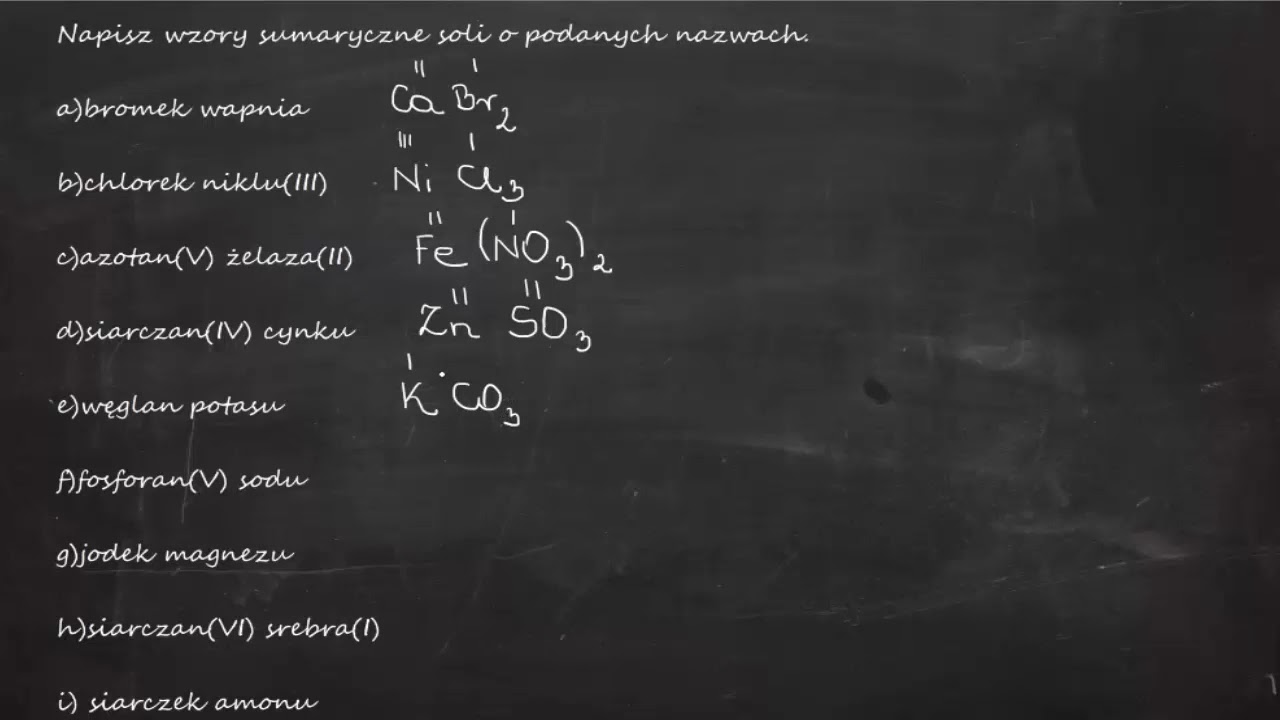 Napisz wzory sumaryczne soli o podanych nazwach.
II I
a)bromek wapnia CaBr₂
III I
b)chlorek niklu(III) NiCl₃
II I
c)azotan(V) żelaza(II) Fe(NO₃)₂
II II
d)siarczan(IV) cynku ZnSO₃
I
e)węglan potasu K CO₃
f)fosforan(V) sodu
g)jodek magnezu
h)siarczan(VI) srebra(I)
i) siarczek amonu